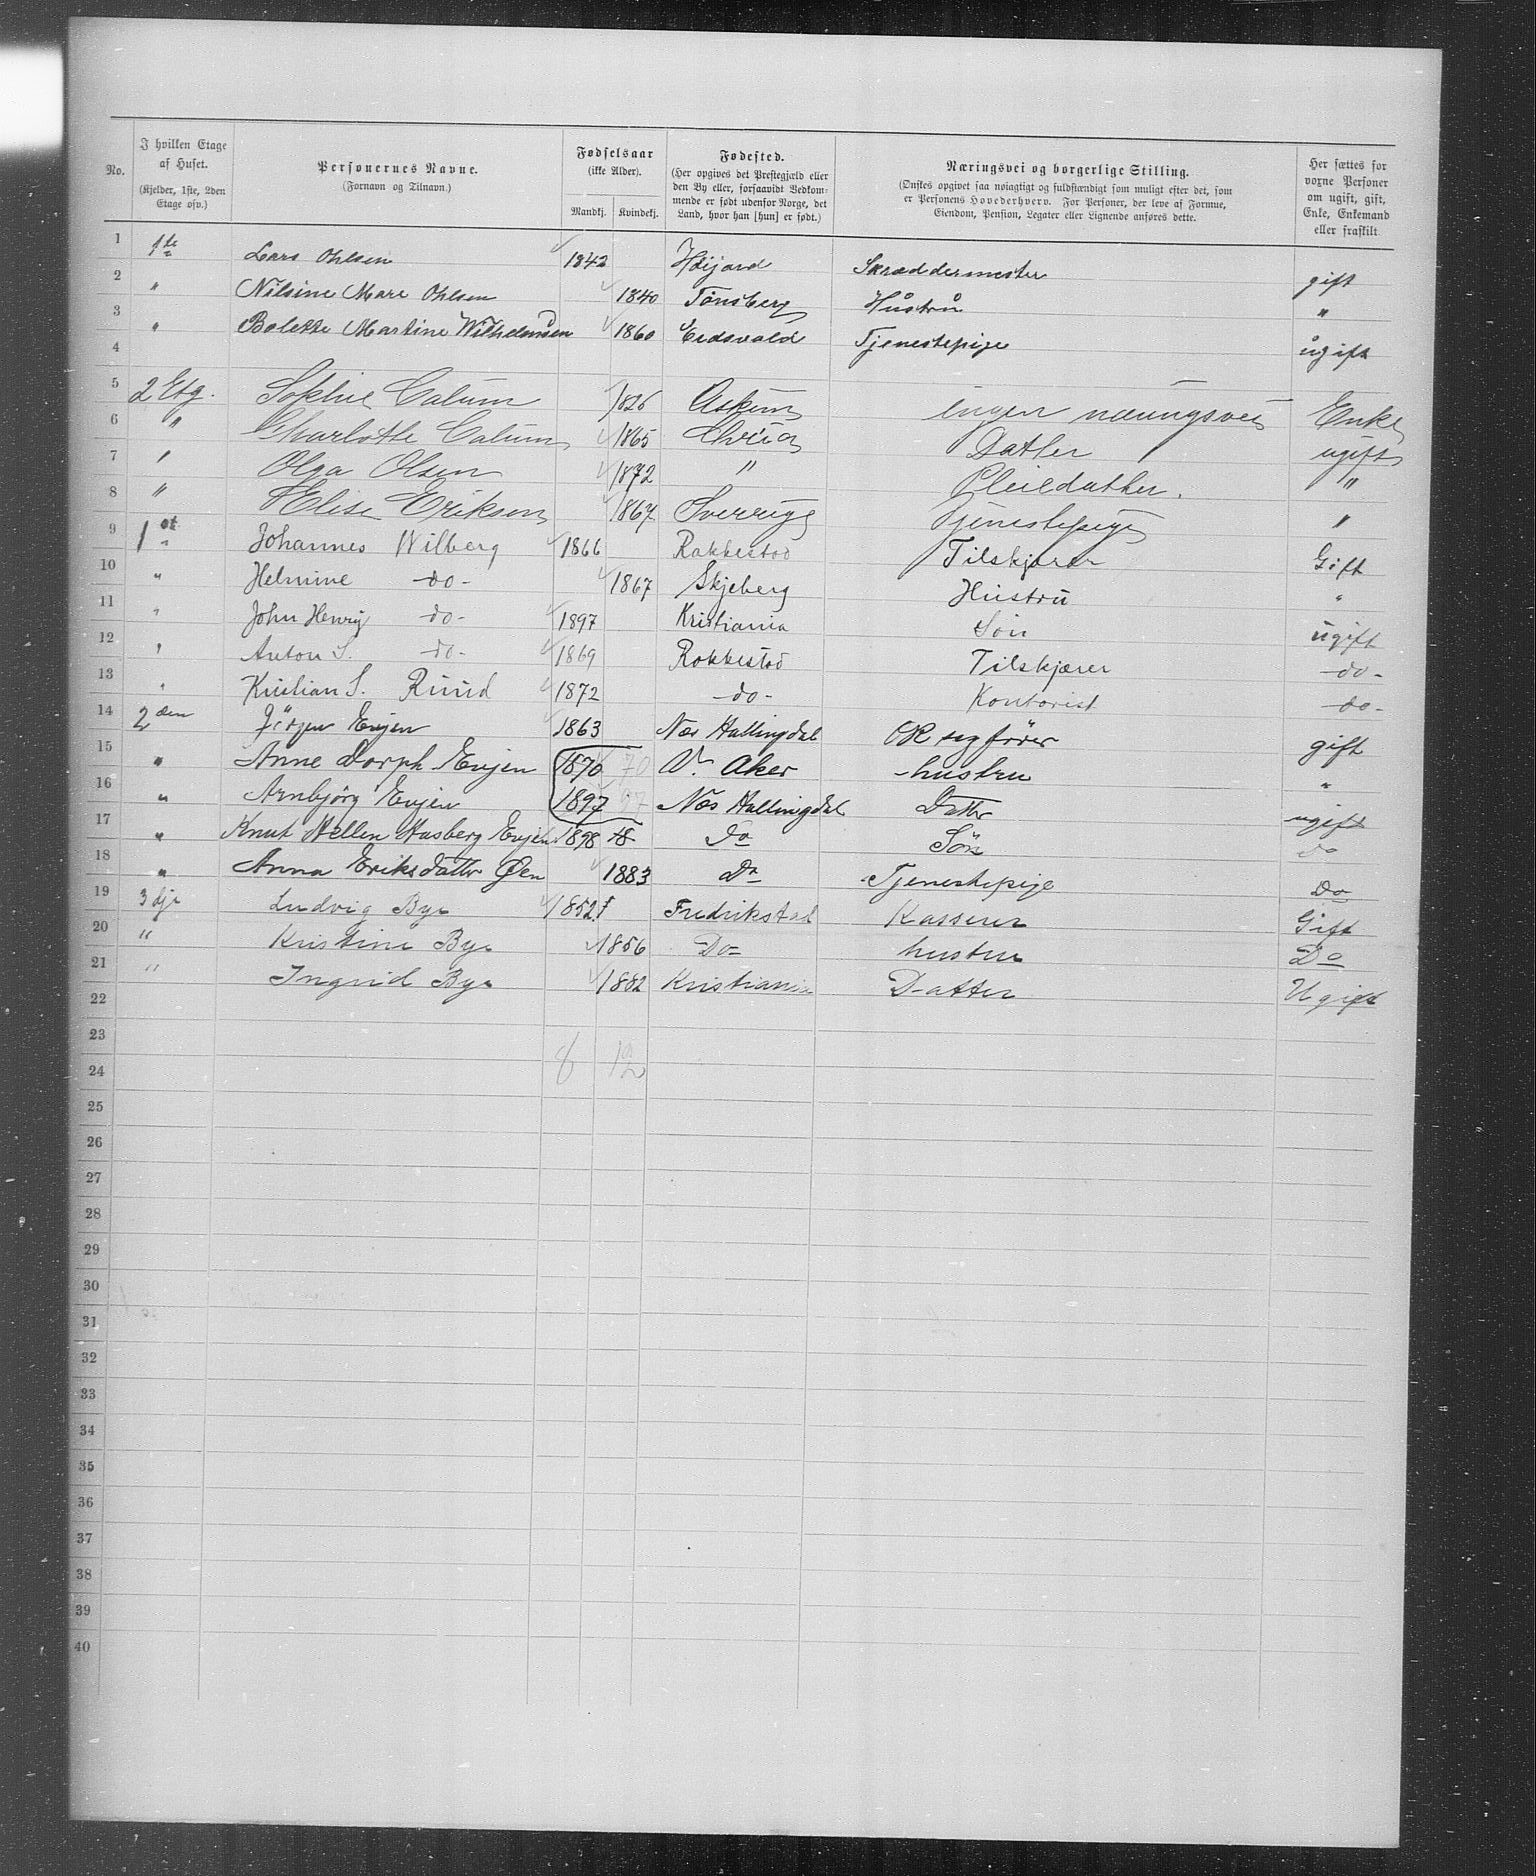 No.
I hvilken Etage
af Huset.
(Kjelder, 1ste, 2den
Etage osv.)
Personernes Navne.
(Fornavn og Tilnavn.)
Fødselsaar
(ikke Alder).
Mandkj. Kvindekj.
Fødested.
(Her opgives det Prestegjæld eller
den By eller, forsaavidt Vedkom-
mende er født udenfor Norge, det
Land, hvor han [hun] er født.)
Næringsvei og borgerlige Stilling.
(Ønskes opgivet saa nøiagtigt og fuldstændigt som muligt efter det, som
er Personens Hovederhverv. For Personer, der leve af Formue,
Eiendom, Pension, Legater eller Lignende anføres dette.
Her sættes for
voxne Personer
om ugift, gift,
Enke, Enkemand
eller fraskilt
1 1te Lars Ohlsen 1842 Høijord Skræddermester gift
2 " Nilsine Mare Ohlsen 1840 Tönsberg Hustru "
3 " Bolette Martine Wilhelmsen 1860 Eidsvold Tjenestepige ugift
4
5 2 Etg. Sophie Calum 1826 Askim ingen næringsvei Enke
6 " Charlotte Calum 1865 Chria Datter ugift
7 " Olga Olsen 1872 " Pleiedatter. "
8 " Elise Eriksen 1867 Sverrige Tjenestepige "
9 1st Johannes Wilberg 1866 Rakkestad Tilskjærer Gift
10 " Helmine -do- 1867 Skjeberg Hustru "
11 " John Henry -do- 1897 Kristiania Søn ugift
12 " Anton S. -do- 1869 Rakkestad Tilskjærer -do-
13 " Kristian S. Ruud 1872 -do- Kontorist -do-
14 2den Jörgen Evjen 1863 Næs Hallingdal OR sagfører gift
15 " Anne Dorph Evjen 1870 70 V. Aker hustru "
16 " Arnbjörg Evjen 1897 97 Næs Hallingdal Datter ugift
17 " Knut Hellen Hasberg Evjen 1898 Do Sön Do
18 " Anna Eriksdatter Øen 1883 Do Tjenestepige Do
19 3dje Ludvig Bye 1852 Fredrikstad Kasserer Gift
20 " Kristine Bye 1856 Do hustru Do
21 " Ingrid Bye 1882 Kristiania Datter Ugift
22
23
8 12
24
25
26
27
28
29
30
31
32
33
34
35
36
37
38
39
40